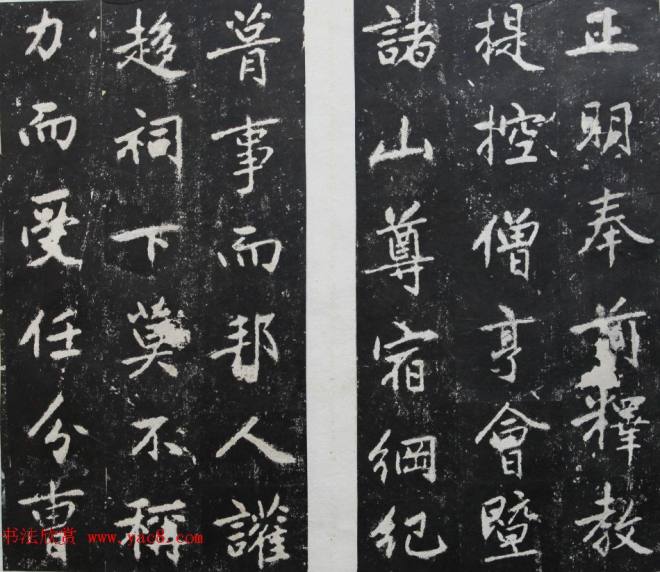 正明奉前釋教
提控僧亨會暨
諸山尊宿綱紀
胥事而邦人讙
趍祠下莫不稱
力而受任分曹
书法欣赏 www.yac8.com